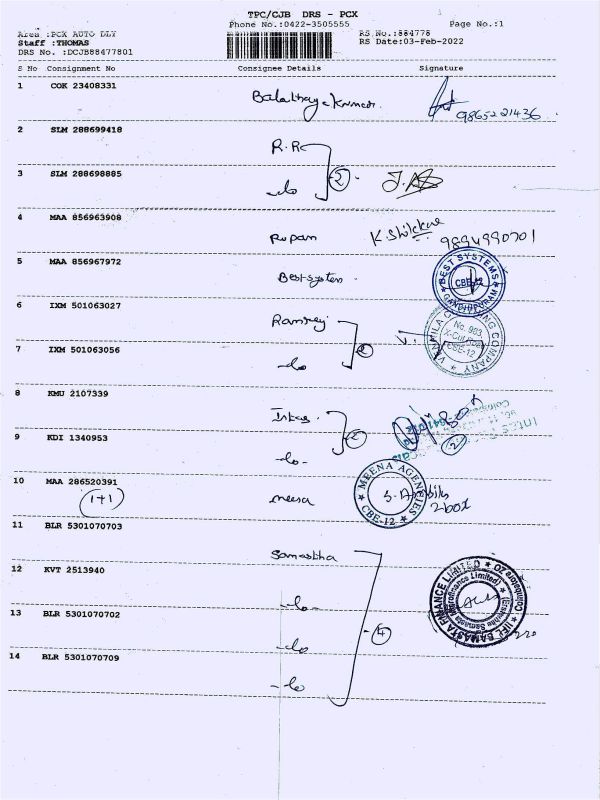 TPC/CJB DRS - PCX
Phone No.:0422-3505555
Page No.:1
Area :PCX AUTO DLY
RS No.:884778
Staff :THOMAS
RS Date:03-Feb-2022
DRS No. :DCJB88477801
S No Consignment No Consignee Details Signature
1 COK 23408331
9865221436
2 SLM 288699418
R.R
2
3 SLM 288698885
-do
4 MAA 856963908
Rupam
9894990701
5 MAA 856967972
Best system
BEST SYSTEMS
CBE-12
GANDHIPURAM
6 IXM 501063027
Ramraj
2
No. 903,
X-Cut Road
CBE-12
COMPANY
7 IXM 501063056
-do
8 KMU 2107339
2
9 KDI 1340953
-do-
10 MAA 286520391
1+1
meena
MEENA AGENCIES
CBE-12
2 box
11 BLR 5301070703
Samastha
12 KVT 2513940
-do-
IIFL SAMASTA FINANCE LIMITED
(Erstwhile Samasta Microfinance Limited)
Coimbatore 20
13 BLR 5301070702
-do
4
14 BLR 5301070709
-do